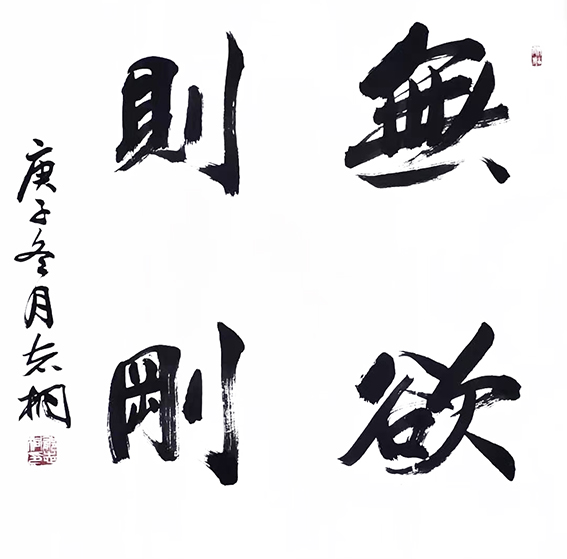 無欲
則剛
庚子冬月志桐